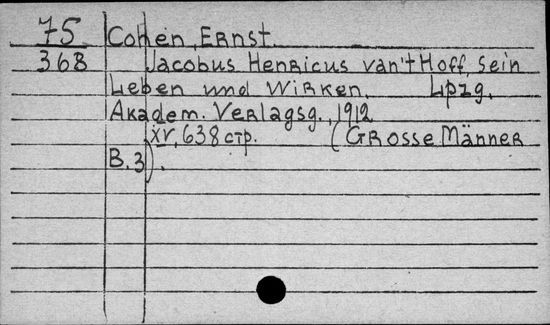 75 Cohen, Ernst.
368 Jacobus Henricus van't Hoff, sein
Leben und Wirken. Lpzg.
Akadem. Verlagsg., 1912
XV, 638 стр. (Grosse Männer
B. 3).